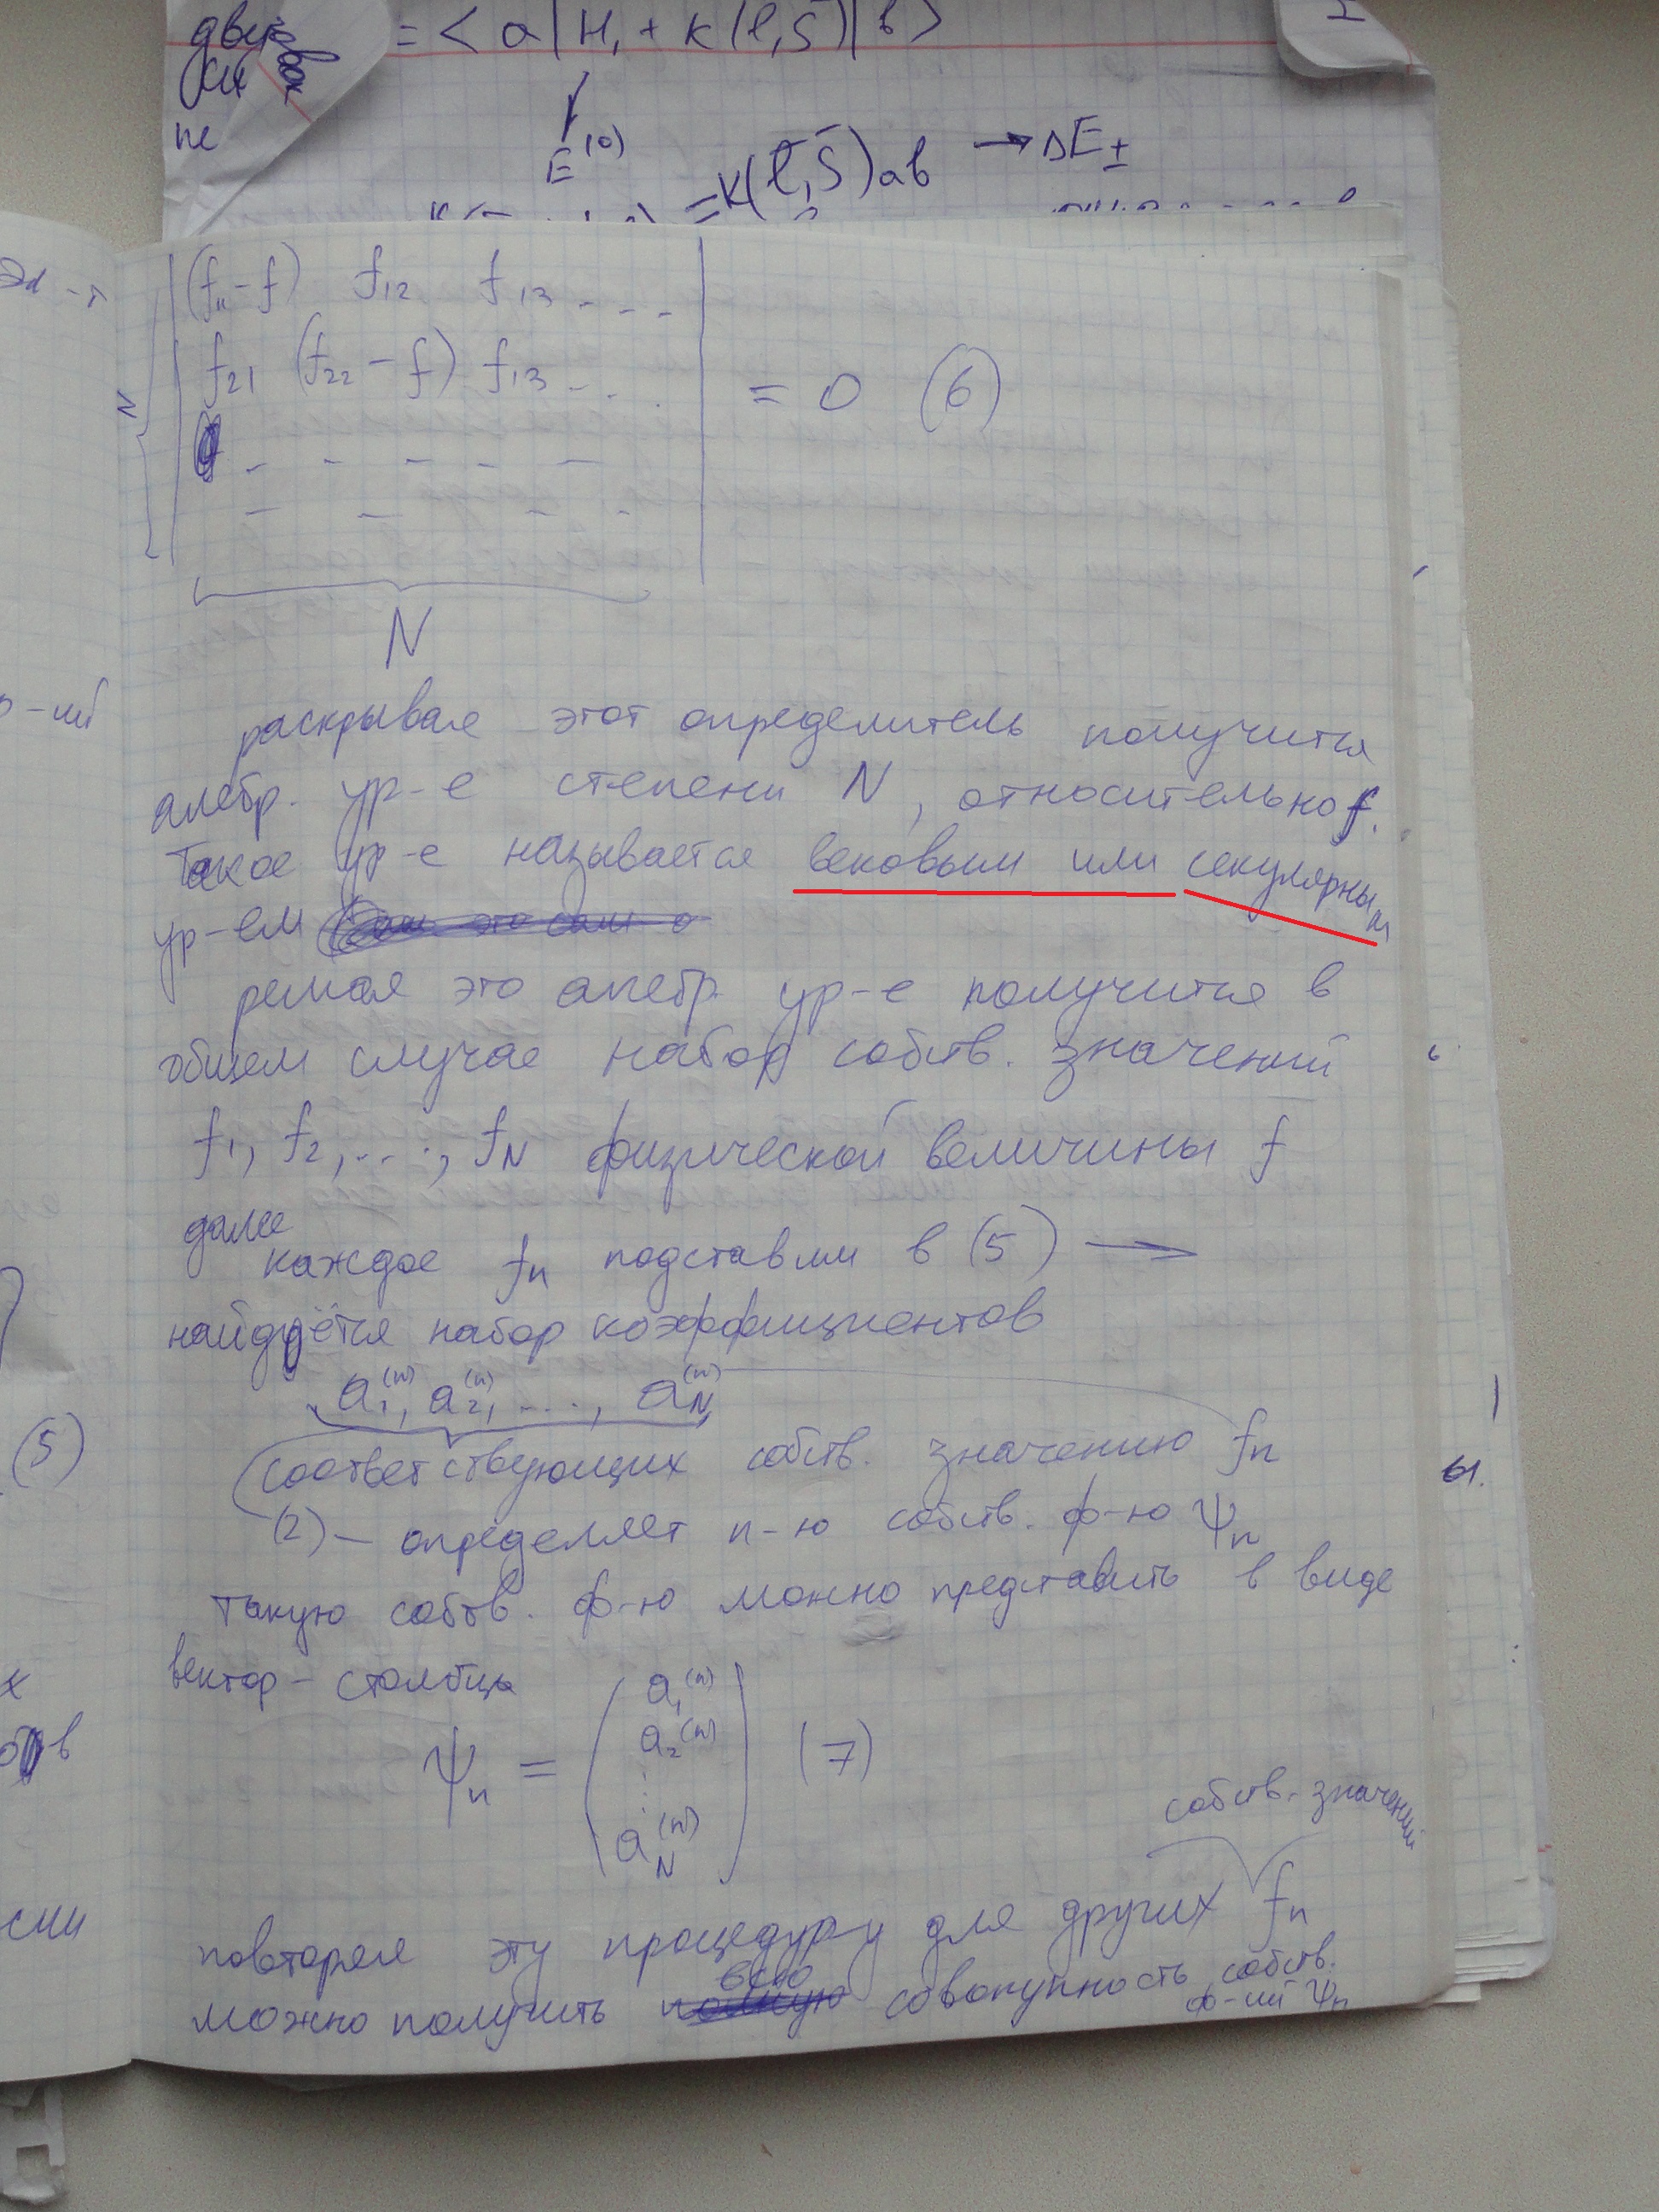 = < a | H₁ + K(l,s) | b >
не
E⁽⁰⁾
= K(l,s)ab → ΔE±
(f₁₁ - f) f₁₂ f₁₃ - - -
f₂₁ (f₂₂ - f) f₁₃ - . .
= 0 (6)
- - - - -
- - - -
N
N
раскрывая этот определитель получится
алгебр. ур-е степени N, относительно f.
Такое ур-е называется вековым или секулярным
ур-ем
решая это алгебр. ур-е получится в
общем случае набор собств. значений
f₁, f₂, ...., f_N физической величины f
далее
каждое f_n подставим в (5) →
найдётся набор коэффициентов
a₁⁽ⁿ⁾, a₂⁽ⁿ⁾, ...., a_N⁽ⁿ⁾
соответствующих собств. значению f_n
(2) – определяет n-ю собств. ф-ю ψ_n
такую собств. ф-ю можно представить в виде
вектор-столбца
ψ_n = ( a₁⁽ⁿ⁾
a₂⁽ⁿ⁾
⋮
a_N⁽ⁿ⁾ ) (7)
собств. значений
повторяя эту процедуру для других f_n
можно получить всю совокупность собств.
ф-ий ψ_n
(5)